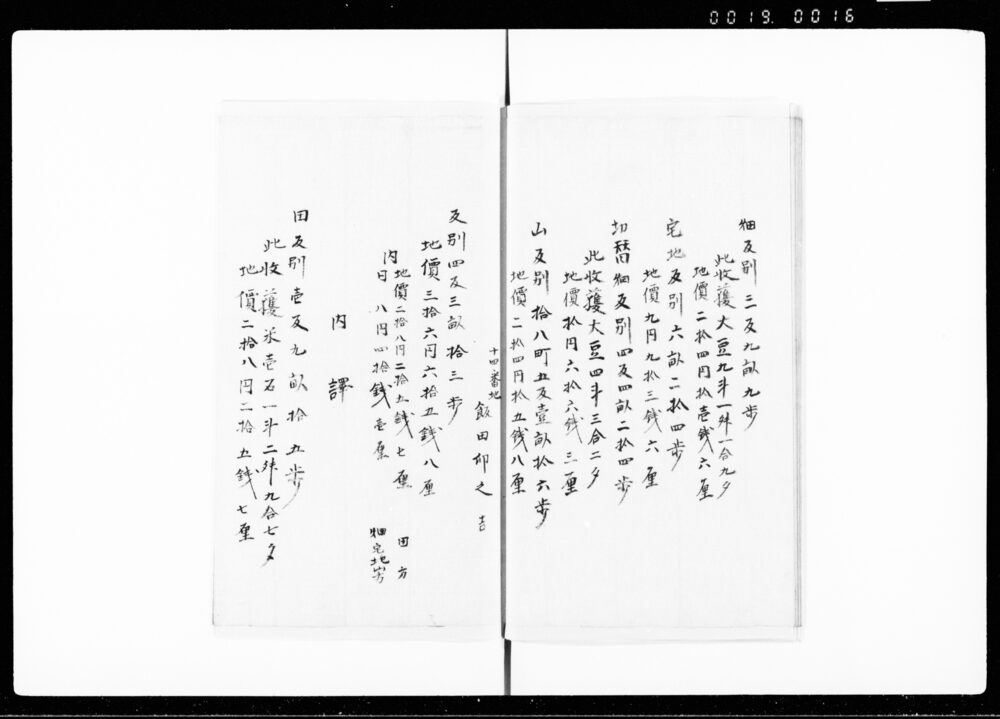 0019.0016
畑反別三反九畝九歩
此收獲大豆九斗一升一合九夕
地價二拾四円拾壱銭六厘
宅地反別六畝二拾四歩
地價九円九拾三銭六厘
切替畑反別四反四畝二拾四歩
此收獲大豆四斗三合二夕
地價拾円六拾六銭三厘
山反別拾八町五反壹畝拾六歩
地價二拾四円拾五銭八厘
十四番地
飯田卯之吉
反別四反三畝拾三歩
地價三拾六円六拾五銭八厘
内
地價二拾八円二拾五銭七厘 田方
日八円四拾銭壱厘 畑宅地山分
内譯
田反別壱反九畝拾五歩
此收獲米壱石一斗二升九合七夕
地價二拾八円二拾五銭七厘